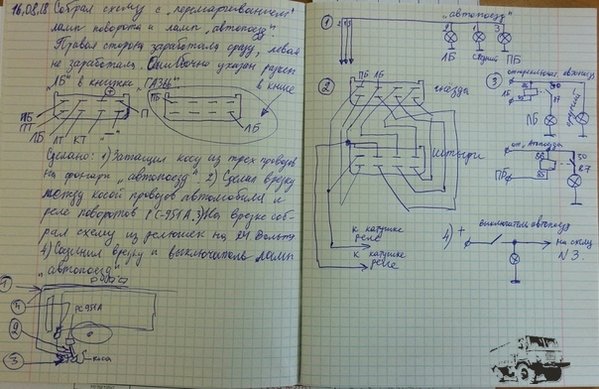 16.08.18 Собрал схему с "перемаргиванием"
ламп поворота и ламп "автопоезд".
Правая сторона заработала сразу, левая
не заработала. Ошибочно указан разъём
"ЛБ" в книжке "ГАЗ66" в книге
ПБ
ПБ
ПТ
ЛБ
ЛТ
КТ
П
ЛБ
Сделано: 1) Затащил косу из трех проводов
на фонари "автопоезд" 2) Сделал врезку
между косой проводов автомобиля и
реле поворотов РС-951А. 3) На врезке соб-
рал схему из релюшек на 24 Вольта
4) Соединил врезку и выключатель ламп
"автопоезд"
1
4
РС951А
2
3
коса
1
"автопоезд"
2 1 3
2
1
3
ЛБ
ПБ
2
ПБ ЛБ
гнёзда
штыри
к катушке
реле
к катушке
реле
3
ЛБ
30
ПБ
86
85
30
87
4) +
выключатель автопоезд
на схему
N 3.